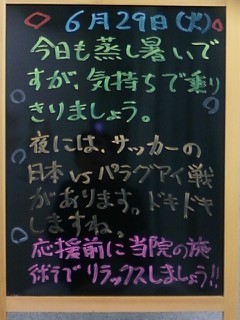 6月29日(火)
今日も蒸し暑いで
すが、気持ちで乗り
きりましょう。
夜には、サッカーの
日本vsパラグアイ戦
があります。ドキドキ
しますね。
応援前に当院の施
術でリラックスしましょう!!